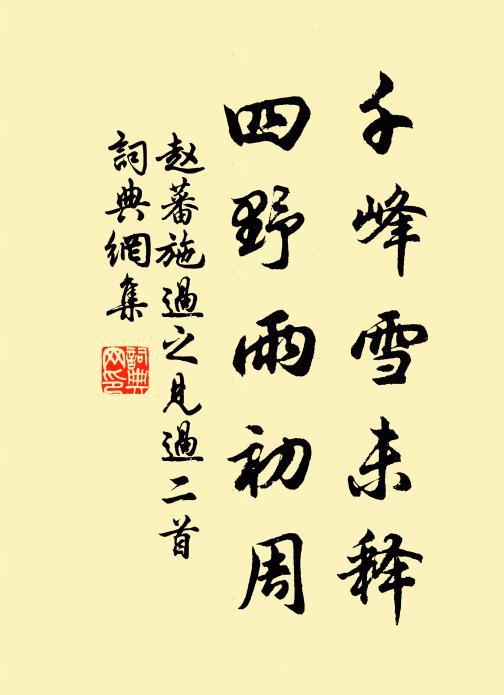 千峰雪未释
四野雨初周
赵蕃施過之見過二首
詞典網集
詞典網印